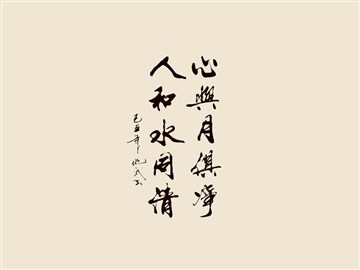 心與月俱淨
人和水同清
己丑年